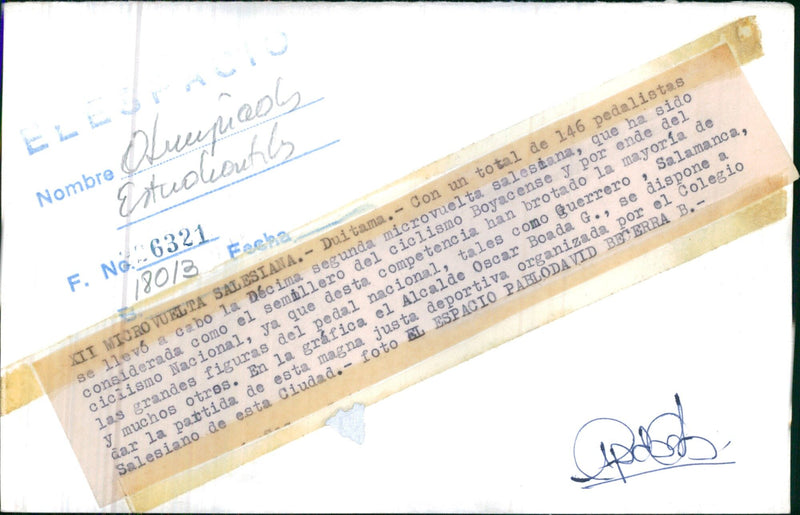 EL ESPACIO
Nombre Olimpiadas
Estudiantiles
F. No. 26321
Fecha
18013
XII MICROVUELTA SALESIANA.- Duitama.- Con un total de 146 pedalistas
se llevó a cabo la Décima segunda microvuelta salesiana, que ha sido
considerada como el semillero del ciclismo Boyacense y por ende del
ciclismo Nacional, ya que desta competencia han brotado la mayoría de
las grandes figuras del pedal nacional, tales como Guerrero, Salamanca,
y muchos otros. En la gráfica el Alcalde Oscar Boada G., se dispone a
dar la partida de esta magna justa deportiva organizada por el Colegio
Salesiano de esta Ciudad.- foto EL ESPACIO PABLODAVID BECERRA B.-